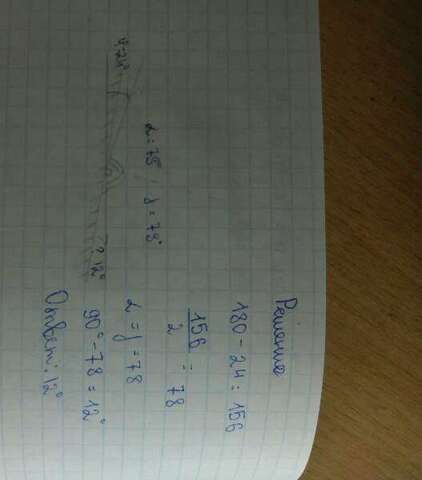 Решение
180 - 24 = 156
156
2
= 78
α = γ = 78
90° - 78 = 12°
Ответ: 12°
? 12°